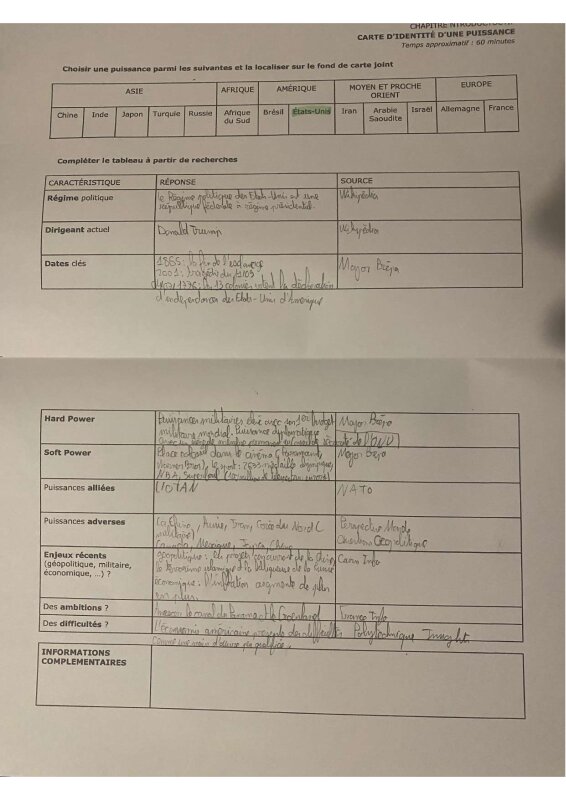 CHAPITRE INTRODUCTIF
CARTE D'IDENTITÉ D'UNE PUISSANCE
Temps approximatif : 60 minutes
Choisir une puissance parmi les suivantes et la localiser sur le fond de carte joint
ASIE AFRIQUE AMÉRIQUE MOYEN ET PROCHE ORIENT EUROPE
Chine Inde Japon Turquie Russie Afrique du Sud Brésil États-Unis Iran Arabie Saoudite Israël Allemagne France
Compléter le tableau à partir de recherches
CARACTÉRISTIQUE RÉPONSE SOURCE
Régime politique le Régime politique des Etats-Unis est une Wikipédia
république fédérale à régime présidentiel.
Dirigeant actuel Donald Trump Wikipédia
Dates clés 1865 : la fin de l'esclavage Major Bréja
2001 : tragédie du 11/09
1776 : les 13 colonies la déclaration
d'indépendance des Etats-Unis d'Amérique
Hard Power Puissances militaires avec son 1er budget Major Bréja
militaire mondial. Puissance diplomatique
avec un siège de membre permanent au conseil de sécurité de l'ONU
Soft Power Place colossal dans le cinéma (Paramount, Major Bréja
Warner Bros), le sport : 2633 médailles olympiques,
NBA, Superbowl
Puissances alliées L'OTAN NATO
Puissances adverses La Chine, Russie, Iran, Corée du Nord ( Perspective Monde
militaire) Questions Géopolitique
Canada, Mexique, Chine
Enjeux récents géopolitique : les projets de la Chine, Cairn Info
(géopolitique, militaire, le terrorisme islamique à la de la Russie
économique, ...) ? économique : l'inflation augmente de plus
en plus.
Des ambitions ? Annexer le canal du Panama et le Groenland France Info
Des difficultés ? L'économie américaine présente des difficultés Polytechnique Insights
comme une main d'œuvre peu qualifiée.
INFORMATIONS
COMPLEMENTAIRES